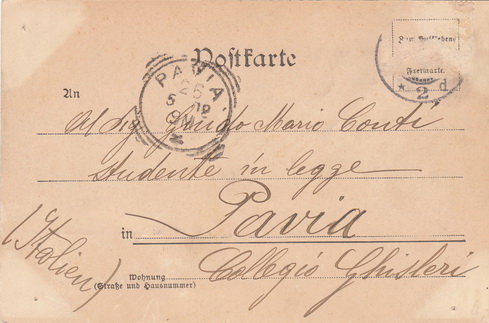 Postkarte
Zum Aufkleben
Freimarke.
* 2 d
PAVIA
26
5
An
Al Sig Guido Mario Conti
Studente in legge
Pavia
in
(Italien)
Collegio Ghisleri
Wohnung
(Straße und Hausnummer)